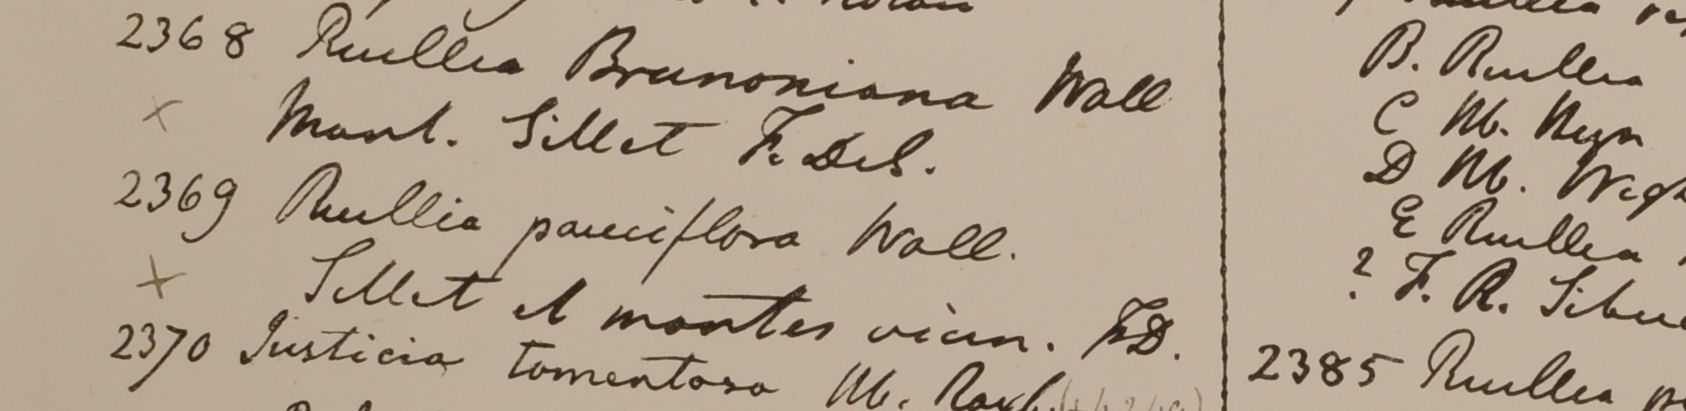 2368 Ruellia Brunoniana Wall
× Mont. Sillet F. DeS.
2369 Ruellia pauciflora Wall.
× Sillet et montes vicin. F.D.
2370 Justicia tomentosa Hb. Roxb.
B. Ruellia
C Hb. Heyn
D Hb. Wigh
E Ruellia
? F. R.
2385 Ruellia